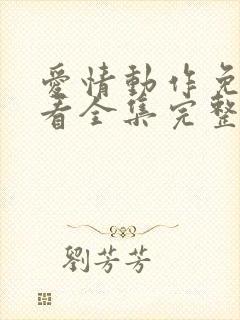 愛情動作免
看全集完整
劉芳芳